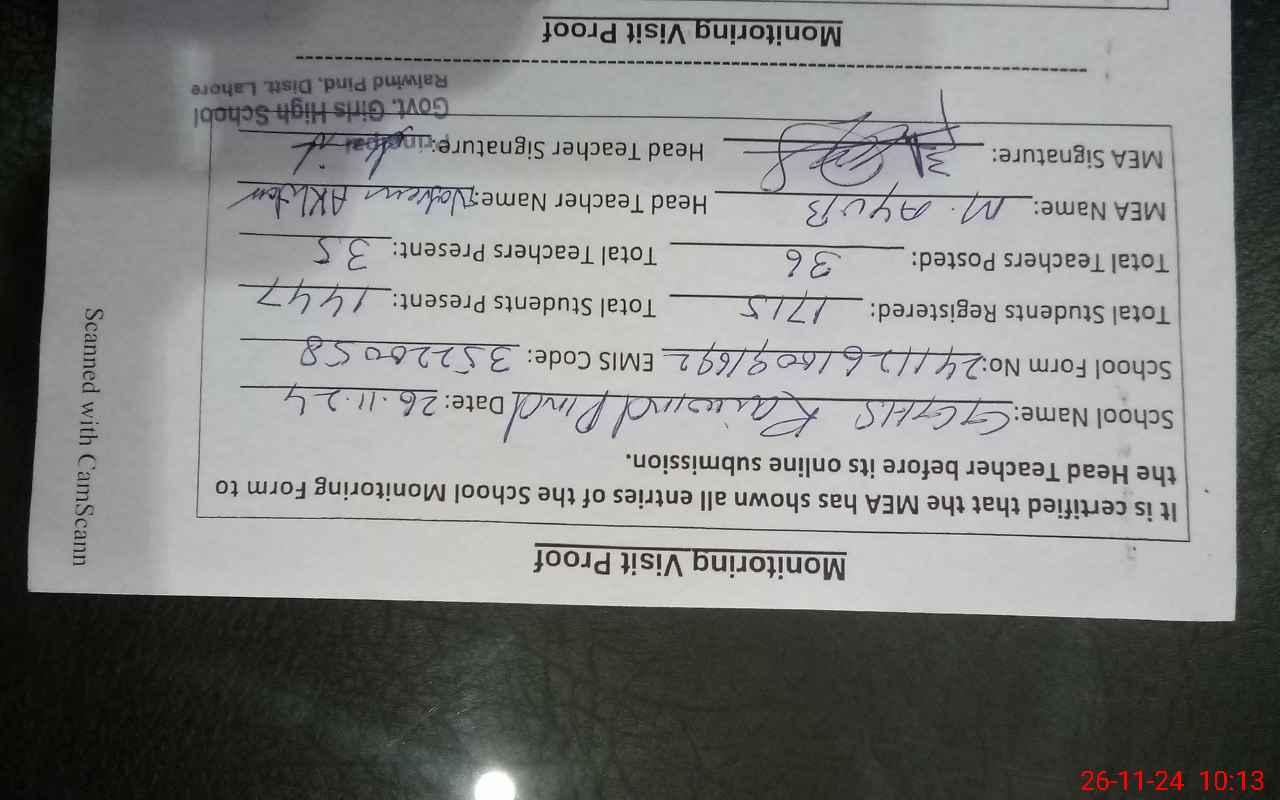 Monitoring Visit Proof
It is certified that the MEA has shown all entries of the School Monitoring Form to
the Head Teacher before its online submission.
School Name: GGHS Raiwind Pind Date: 26.11.24
School Form No: 24112610091692 EMIS Code: 35220058
Total Students Registered: 1715 Total Students Present: 1447
Total Teachers Posted: 36 Total Teachers Present: 35
MEA Name: M. AYUB Head Teacher Name: AKhtar
MEA Signature: Head Teacher Signature:
Principal
Govt. Girls High School
Raiwind Pind, Distt. Lahore
Monitoring Visit Proof
Scanned with CamScann
26-11-24 10:13